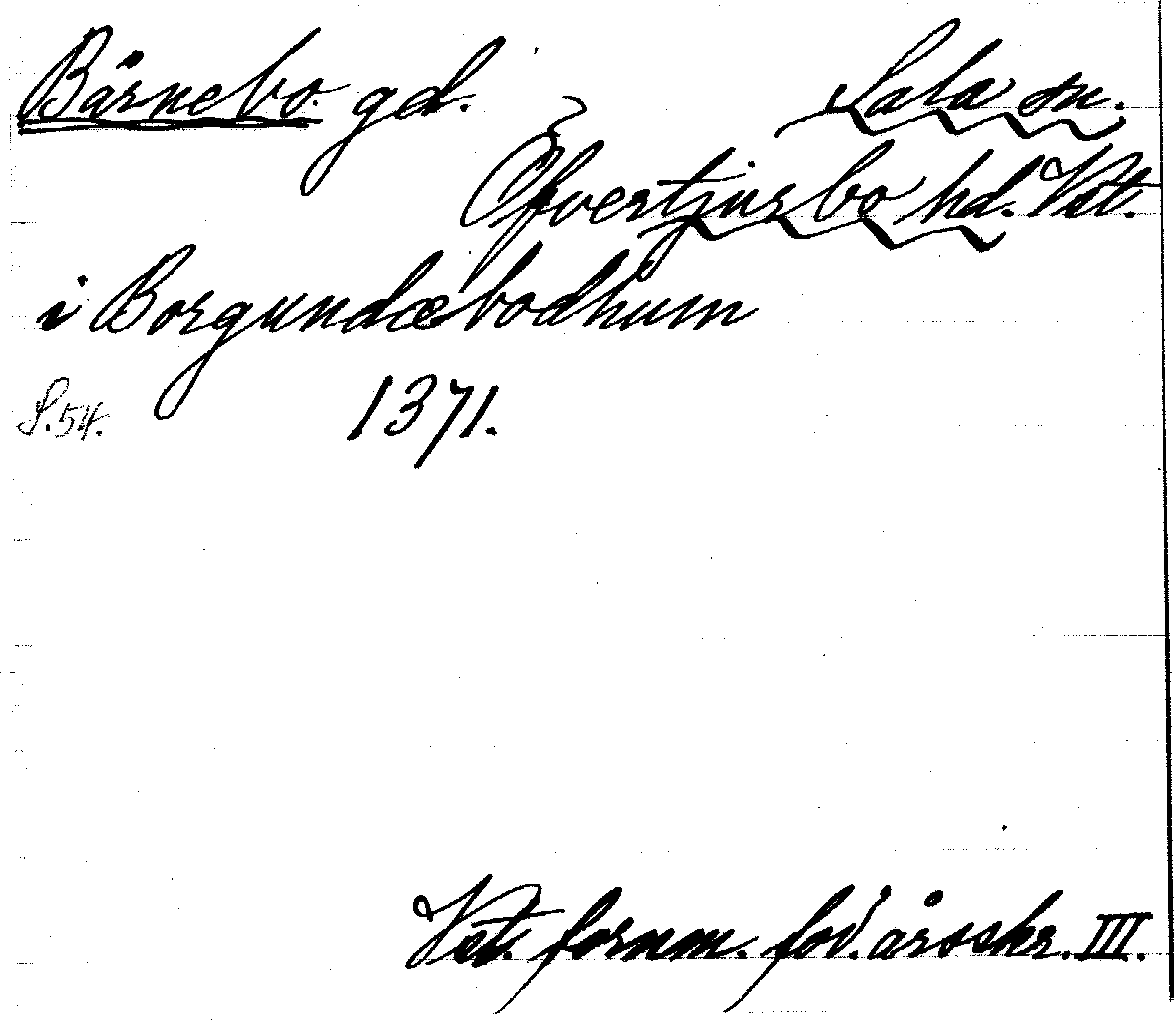 Bårnebo. gd. Sala sn.
Öfvertjurbo hd. Vst.
i Borgundæbodhum
S.54. 1371.
Vst. fornm. för. årsskr. III.